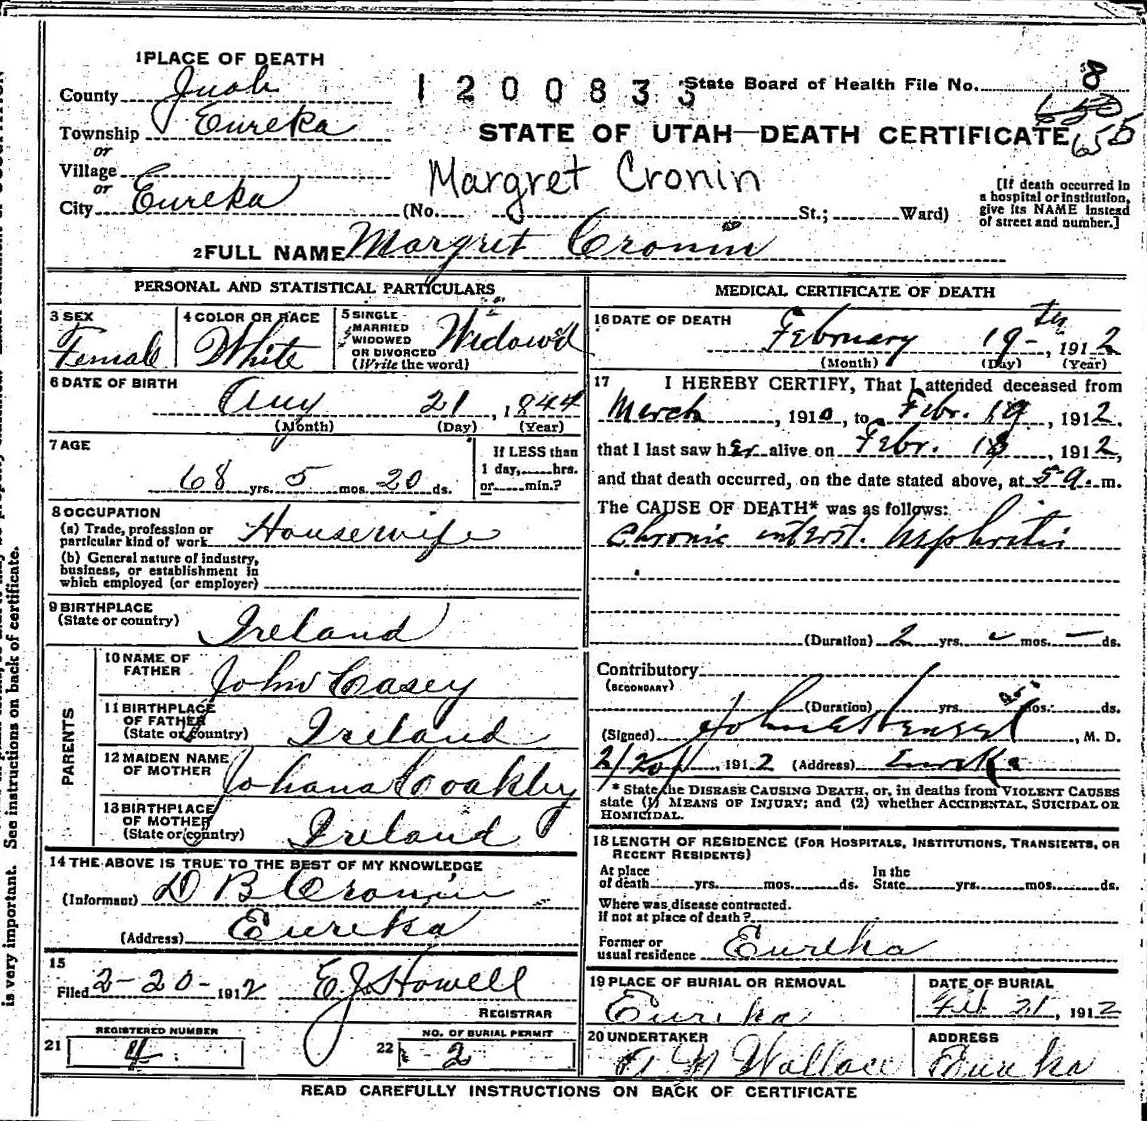 1 PLACE OF DEATH
County Juab
1200833
State Board of Health File No. 8
Township Eureka
or
STATE OF UTAH—DEATH CERTIFICATE 655
Village
or
Margret Cronin
City Eureka (No. St.; Ward)
[If death occurred in
a hospital or institution,
give its NAME instead
of street and number.]
2 FULL NAME Margret Cronin
PERSONAL AND STATISTICAL PARTICULARS
3 SEX
Female
4 COLOR OR RACE
White
5 SINGLE
MARRIED
WIDOWED
OR DIVORCED
(Write the word)
Widowed
6 DATE OF BIRTH
Aug 21, 1844
(Month) (Day) (Year)
7 AGE
68 yrs. 5 mos. 20 ds.
If LESS than
1 day, hrs.
or min.?
8 OCCUPATION
(a) Trade, profession or
particular kind of work Housewife
(b) General nature of industry,
business, or establishment in
which employed (or employer)
9 BIRTHPLACE
(State or country)
Ireland
PARENTS
10 NAME OF
FATHER
John Casey
11 BIRTHPLACE
OF FATHER
(State or country) Ireland
12 MAIDEN NAME
OF MOTHER
Johana Coakley
13 BIRTHPLACE
OF MOTHER
(State or country) Ireland
14 THE ABOVE IS TRUE TO THE BEST OF MY KNOWLEDGE
(Informant) D B Cronin
(Address) Eureka
15
Filed 2-20- 1912 E. J. Howell
REGISTRAR
21 REGISTERED NUMBER
4
22 NO. OF BURIAL PERMIT
2
MEDICAL CERTIFICATE OF DEATH
16 DATE OF DEATH
February 19th, 1912
(Month) (Day) (Year)
17 I HEREBY CERTIFY, That I attended deceased from
March, 1910, to Febr. 19, 1912,
that I last saw her alive on Febr. 18, 1912,
and that death occurred, on the date stated above, at 5 a. m.
The CAUSE OF DEATH* was as follows:
Chronic interst. Nephritis
(Duration) 2 yrs. – mos. – ds.
Contributory
(SECONDARY)
(Duration) yrs. mos. ds.
(Signed) John , M. D.
2/20, 1912 (Address) Eureka
* State the DISEASE CAUSING DEATH, or, in deaths from VIOLENT CAUSES
state (1) MEANS OF INJURY; and (2) whether ACCIDENTAL, SUICIDAL OR
HOMICIDAL.
18 LENGTH OF RESIDENCE (FOR HOSPITALS, INSTITUTIONS, TRANSIENTS, OR
RECENT RESIDENTS)
At place
of death yrs. mos. ds.
In the
State yrs. mos. ds.
Where was disease contracted.
If not at place of death?
Former or
usual residence Eureka
19 PLACE OF BURIAL OR REMOVAL
Eureka
DATE OF BURIAL
Feb 21, 1912
20 UNDERTAKER
Wallace
ADDRESS
Eureka
READ CAREFULLY INSTRUCTIONS ON BACK OF CERTIFICATE
is very important. See instructions on back of certificate.